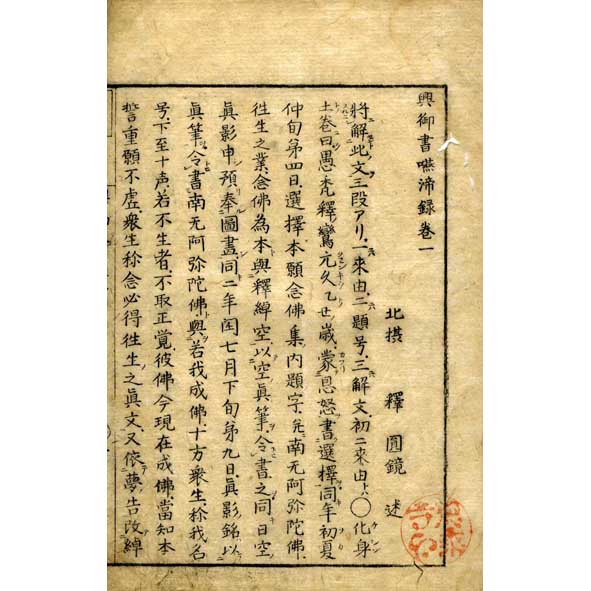 興御書嚥渧録卷一
北摂 釋 圓鏡 述
將解此文三段アリ一來由二題号三解文初ニ來由トハ〇化身
土巻曰愚禿釋鸞元久乙丑歳蒙恩恕書選擇同年初夏
仲旬第四日選擇本願念佛集内題字并南无阿弥陀佛
徃生之業念佛為本與釋綽空以空眞筆令書之同日空
眞影申預奉圖畫同二年閏七月下旬第九日眞影銘以
眞筆令書南无阿弥陀佛與若我成佛十方衆生称我名
号下至十声若不生者不取正覚彼佛今現在成佛當知本
誓重願不虚衆生称念必得徃生之眞文又依夢告改綽